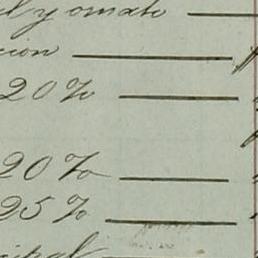 l y ornato
cion
20%
20%
25%
cipal